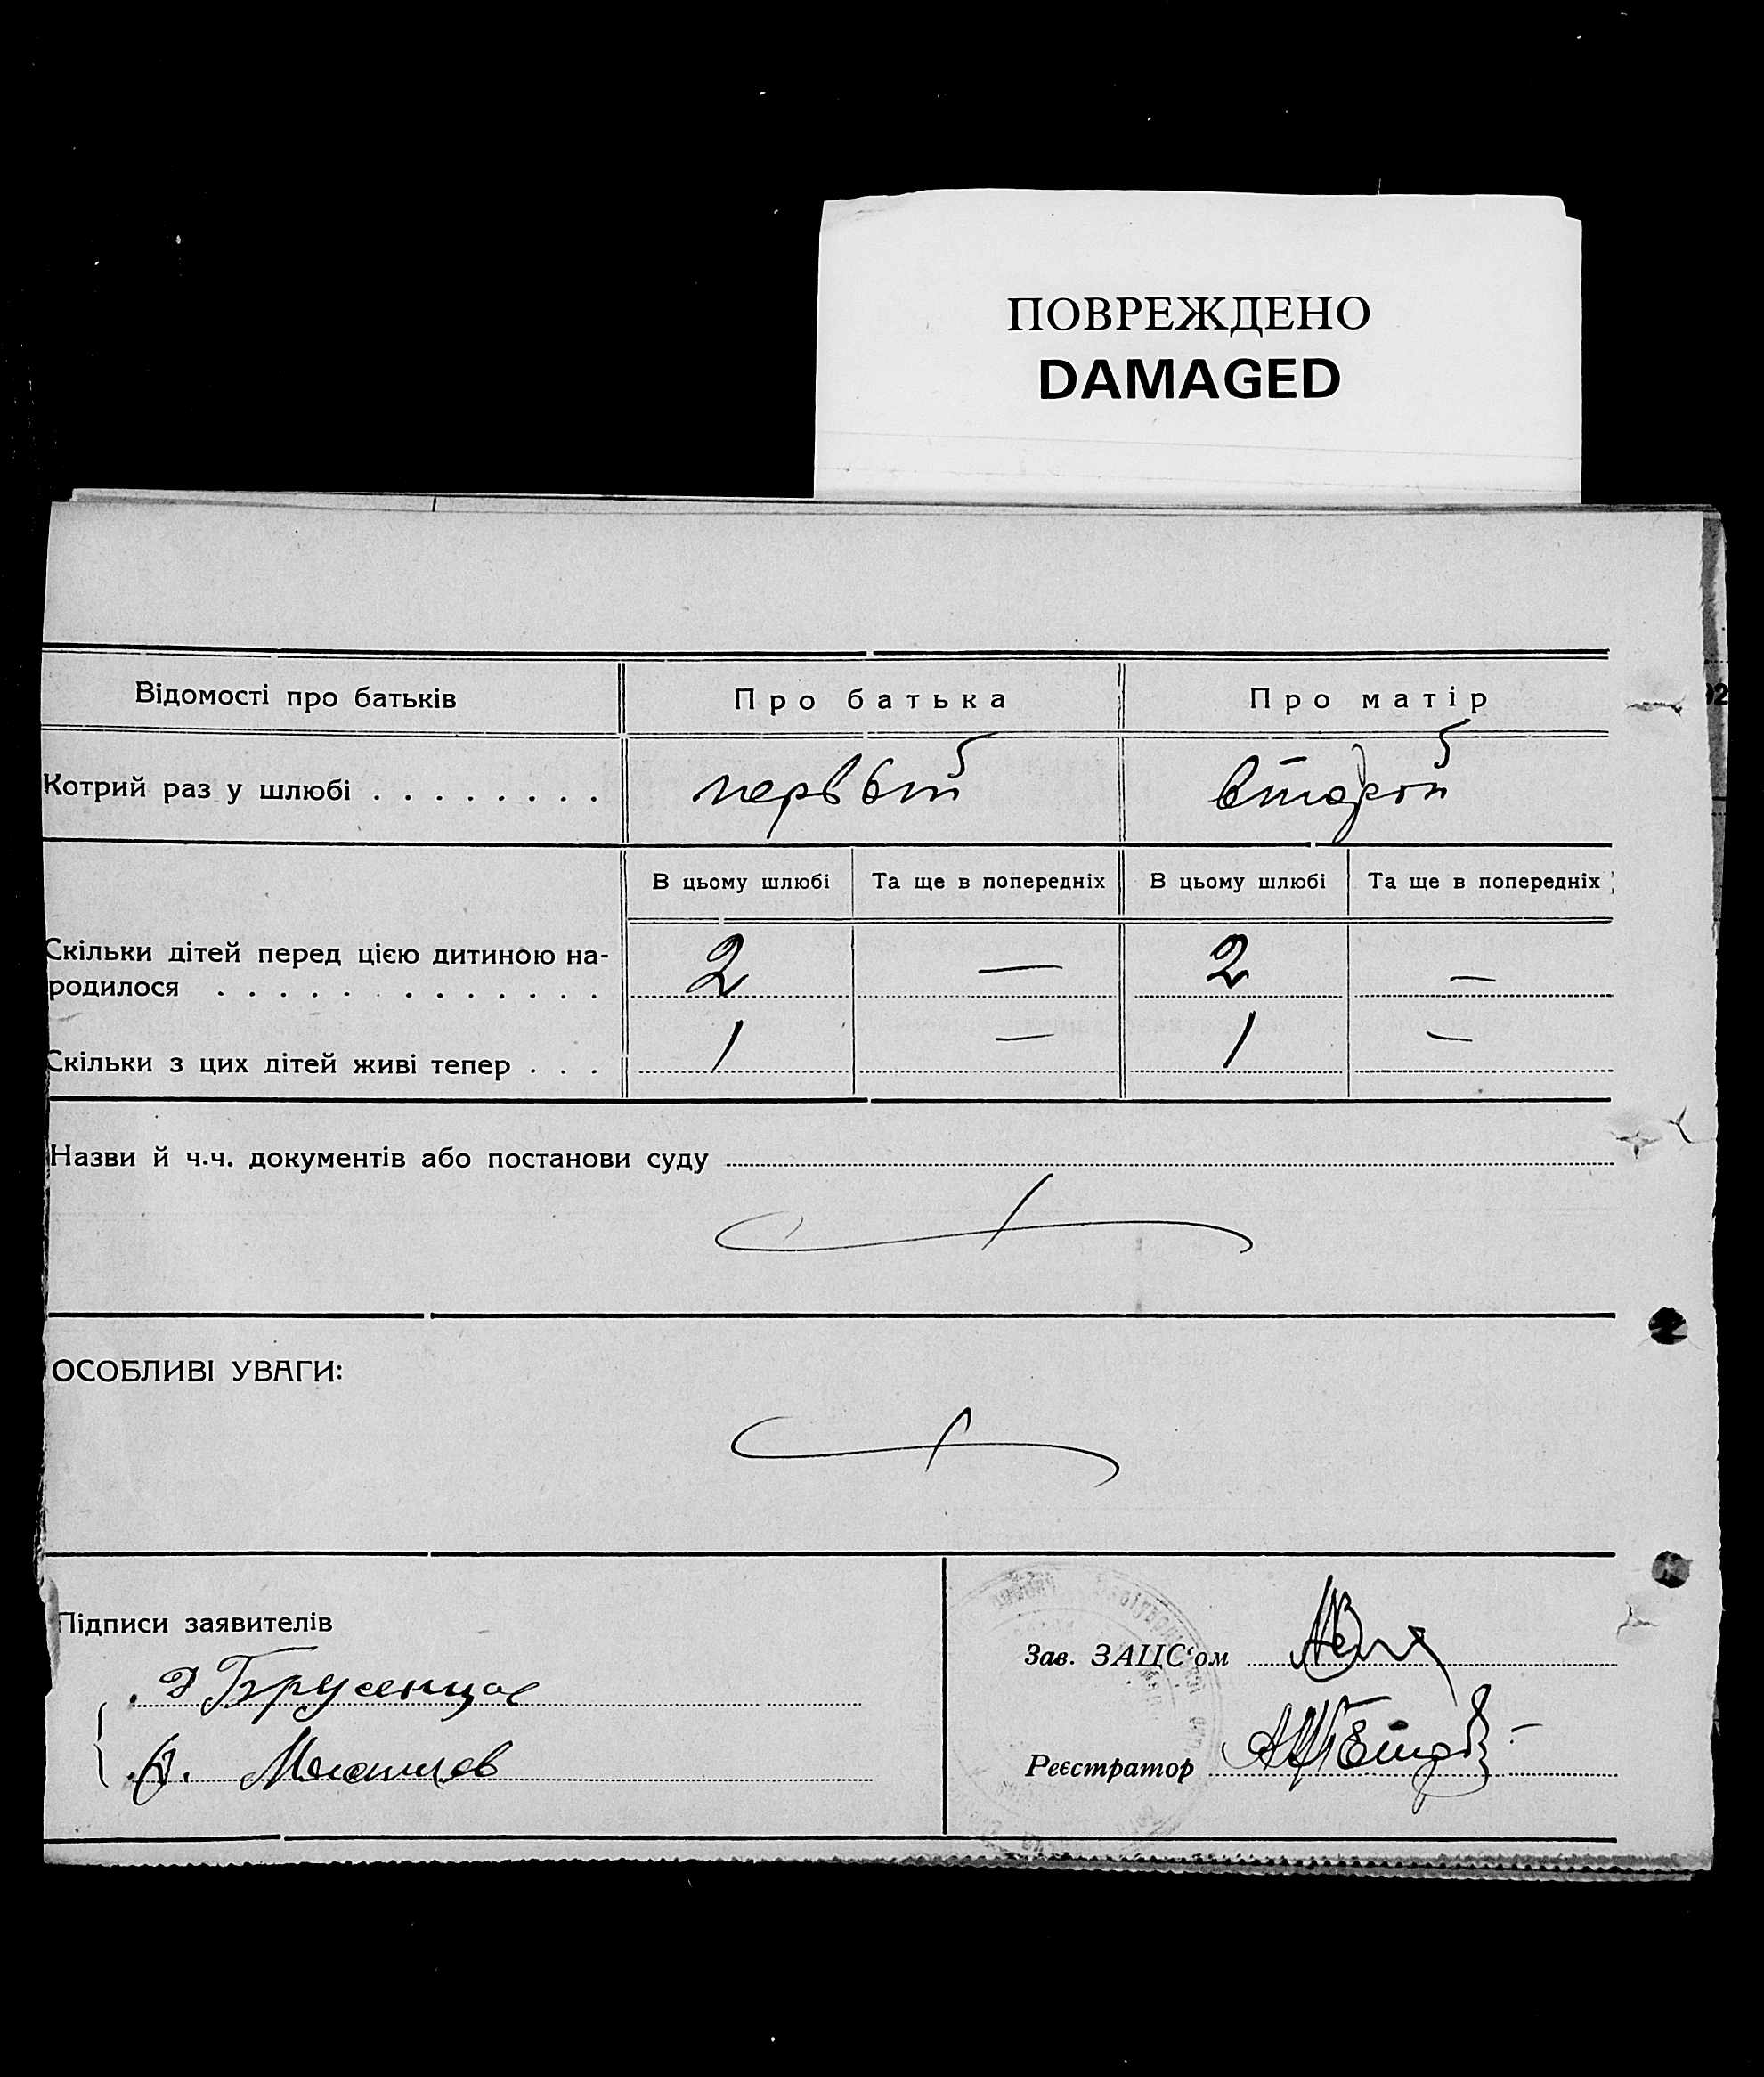 ПОВРЕЖДЕНО
DAMAGED
Відомості про батьків Про батька Про матір
Котрий раз у шлюбі . . . . . . . . первый второй
В цьому шлюбі Та ще в попередніх В цьому шлюбі Та ще в попередніх
Скільки дітей перед цією дитиною на-
родилося . . . . . . . . . . . . . . 2 — 2 —
Скільки з цих дітей живі тепер . . . 1 — 1 —
Назви й ч.ч. документів або постанови суду
ОСОБЛИВІ УВАГИ:
Підписи заявителів
Зав. ЗАЦС'ом
Реєстратор